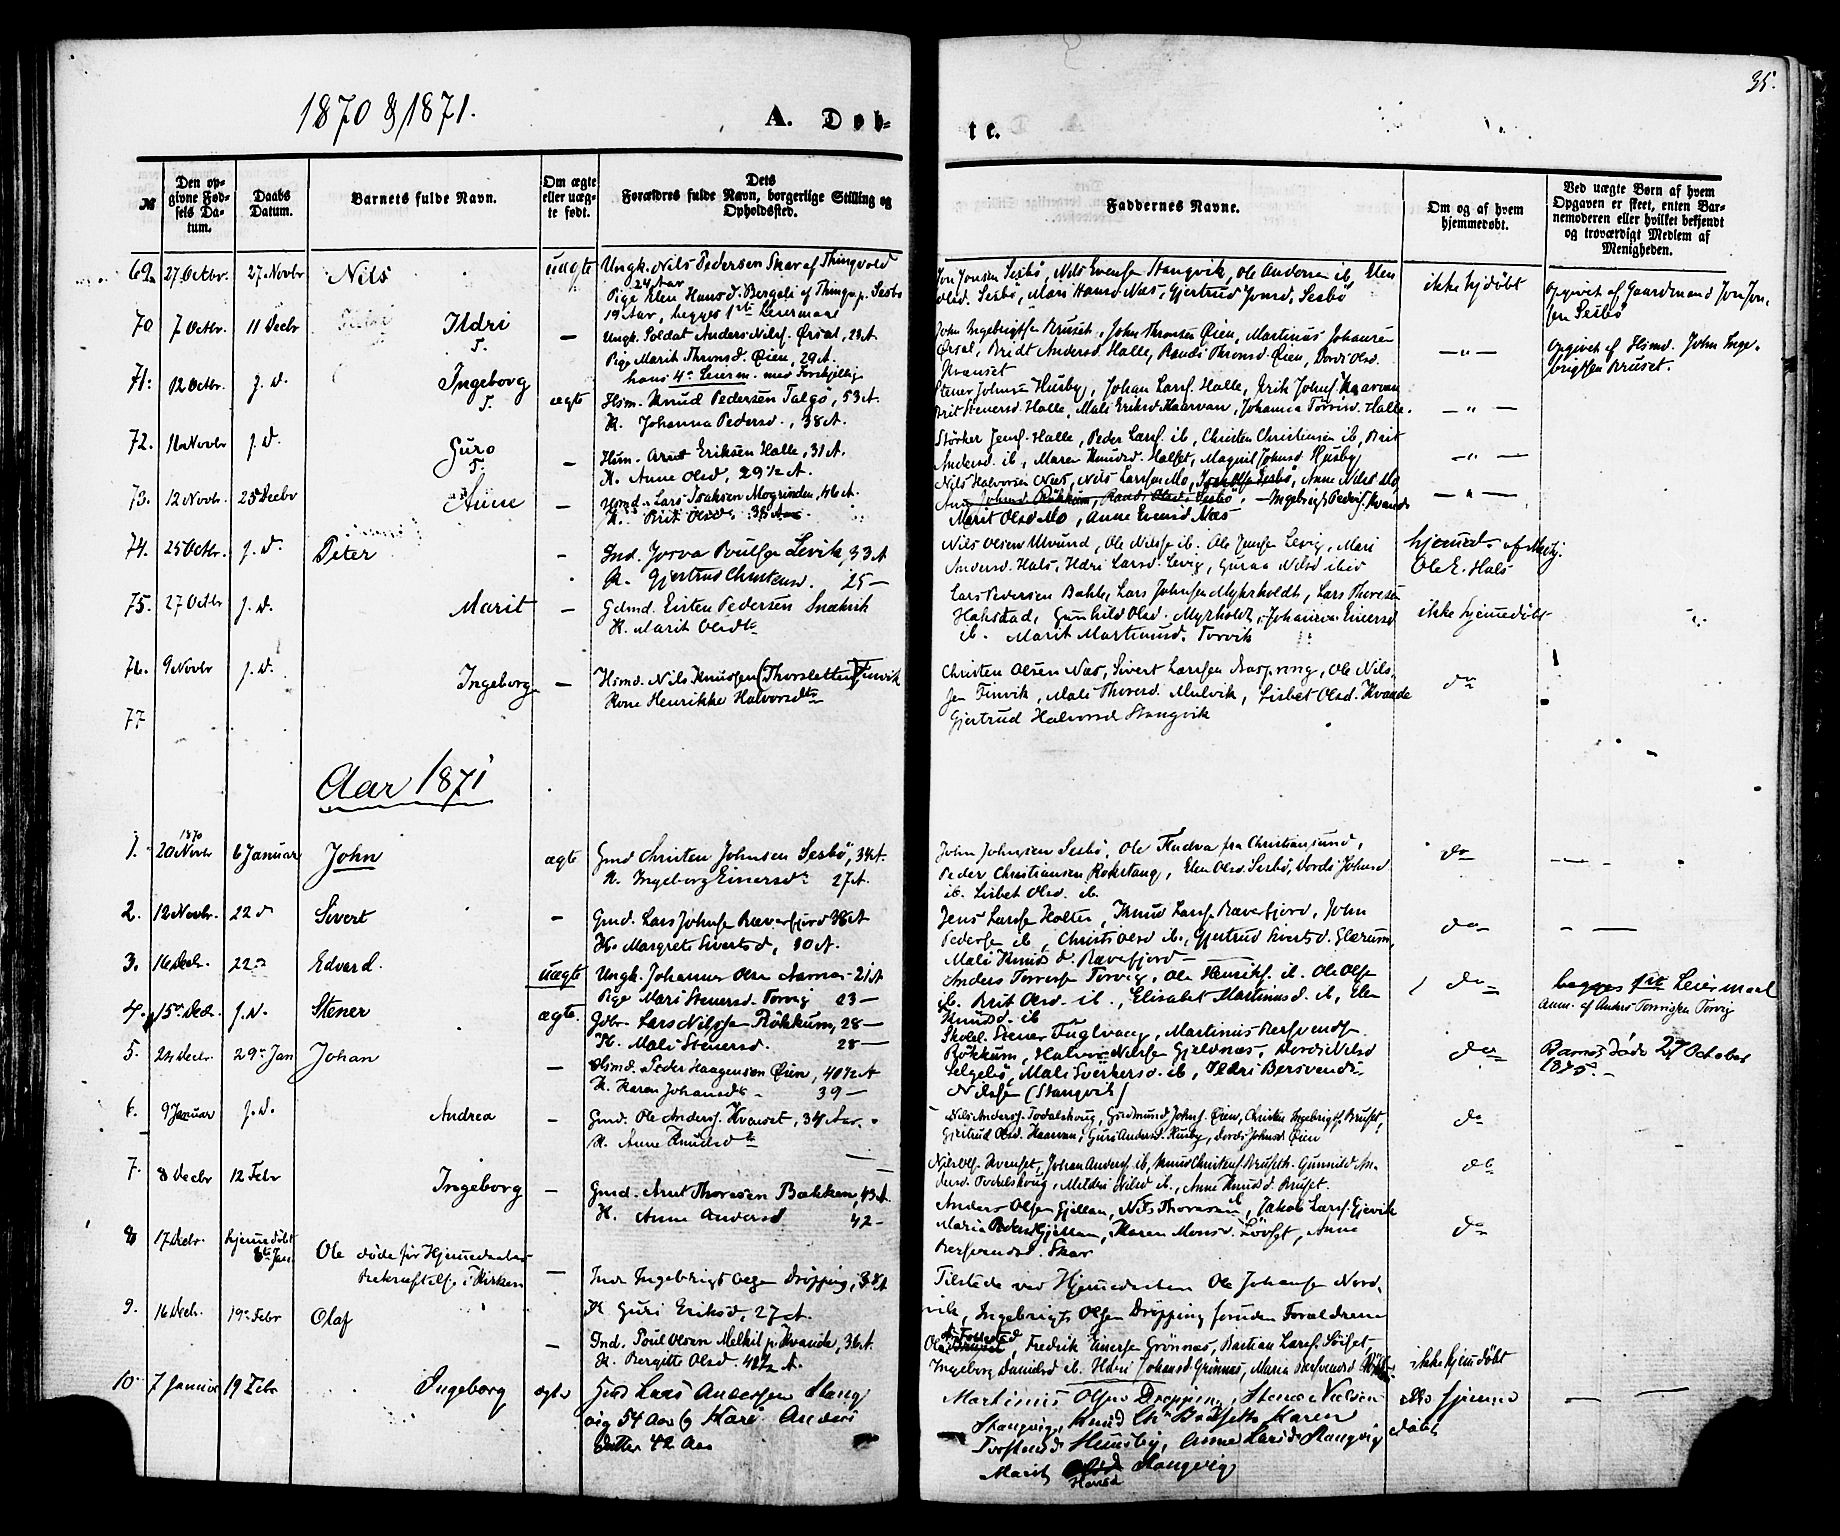 35.
1870 & 1871.
A. Døb-
te.
№
Den op-
givne Fød-
sels Da-
tum.
Daabs
Datum.
Barnets fulde Navn.
Om ægte
eller uæg-
te født.
Dets
Forældres fulde Navn, borgerlige Stilling og
Opholdssted.
Faddernes Navne.
Om og af hvem
hjemmedøbt.
Ved uægte Børn af hvem
Opgaven er skeet, enten Bar-
nemoderen eller hvilket bekjendt
og troværdigt Medlem af
Menigheden.
69. 27 Octbr. 27 Novbr Nils uægte Ungk. Nils Pedersen Skar af Thingvold
24 Aar
Pige Elen Hansd. Bergeli af Thingv. p. Sesbø
19 Aar, begges 1ste Leiermaal
Jon Jonsen Sesbø, Nils Evensen Stangvik, Ole Andersen ib, Elen
Olsd. Sesbø, Mari Hansd Næs, Gjertrud Jonsd. Sesbø
ikke hjdøbt
opgivet af Gaardmand Jon Jon-
sen Sesbø
70 7 Octbr. 11 Decbr Ildri — Ungk. Soldat Anders Nilss. Ørsal, 23 A.
Pige Marit Thronsd. Øien, 29 A.
hans 4de Leierm. med Forskjellige
John Ingebrigtsen Bruset, John Thronsen Øien, Martinus Johansen
Ørsal, Bridt Andersd. Halle, Randi Thronsd. Øien, Dordi Olsd.
Kvanset
— " —
opgivet af Hsmd. John Inge-
brigtsen Bruset.
71. 12 Octbr. s. d. Ingeborg ægte Hsm. Knud Pedersen Talgø, 53 A.
K. Johanna Pedersd., 38 A.
Stener Johnsen Husby, Johan Larss. Halle, Erik Johns. Kaarvan
Brit Stenersd. Halle, Mali Eriksd Kaarvan, Johanna Torrisd. Halle.
— " —
72. 11 Novbr s. d. Guro — Hsm. Arnt Eriksen Halle, 31 A.
K. Anne Olsd, 29 ½ A.
Størker Jens. Halle, Peder Larss. ib, Christen Christensen ib, Brit
Andersd. ib, Maren Knudsd. Halset, Magnil Johnsd Husby
— " —
73. 12 Novbr. 25 Decbr Anne — Hsmd. Lars Isaksen Mogrinden, 46 A.
K. Brit Olsd., 35 Aar.
Nils Halvorsen Næs, Nils Larssen Mo, Sesbø, Anne Nilsd Mo
Johnsd Røkkum, Randi Olsd. Sesbø, — Ingebrigt Peders. Kvande
Marit Olsd Mo, Anne Evensd Næs
— " —
74. 25 Octbr. s. d. Peter — Ind. Josva Poulse Levik, 33 A
K. Gjertrud Christensd. 25 —
Nils Olsen Ulvund, Ole Nilsse ib. Ole Jensse Levig, Mari
Andersd. Hals, Ildri Larsd. Levig, Guraa Nilsd ibid
hjemed. af
Ole E. Hals
75. 27 Octbr s. d. Marit — Gdmd. Eisten Pedersen Snekvik
K. Marit Olsdtr
Lars Pedersen Bahle, Lars Johnsen Myhrholdt, Lars Thoresen
Halsstad, Gunhild Olsd. Myrholdt, Johanna Einersd
ib. Marit Martinusd. Torvik
ikke hjemedøbt
76. 9 Novbr s. d. Ingeborg — Hsmd. Nils Knudsen (Thorsletten) Finvik
Kone Henrikke Halvorsdtr
Christen Olsen Næs, Sivert Larssen Aaspring, Ole Nils-
sen Finvik, Mali Thoresd. Mulvik, Lisbet Olsd. Kvande
Gjertrud Halvorsd Stangvik
do
77
Aar 1871
1. 1870
20 Novbr 6 Januar John ægte Gmd Christen Johnsen Sesbø, 34 A.
K. Ingeborg Einersdtr 27 A.
John Johnsen Sesbø, Ole Fludva fra Christiansund,
Peder Christiansen Rokstang, Elen Olsd. Sesbø, Dordi Johnsd
ib. Lisbet Olsd. ib.
do
2. 12 Novbr. 22 d Sivert — Gmd. Lars Johnse Ræverfjord 38 A
K. Margrete Sivertsd, 30 A.
Jens Larsse Holten, Knud Larsse Ræverfjord, John
Pedersse ib, Christi Olsd ib., Gjertrud Sivertsd. Glærum,
Mali Knudsd. Rævefjord —
do
3. 16 Decbr. 22 d Edvard. uægte Ungk. Johannes Olsen Aarnes 21 A
Pige Mari Stenersd. Torvig 23 —
Anders Torresse Torvig, Ole Henriks. ib. Ole Olse
ib. Brit Olsd. ib., Elisabet Martinusd. ib, Elen
Knudsd. ib
do
begges 1ste Leiermaal
Anm. af Anders Torresen Torvig
4. 15 Decbr. s. d. Stener ægte. Gdbr. Lars Nilsse Røkkum, 28 —
K. Mali Stenersd. 28 —
Skolel. Stener Fuglvaag, Martinus Bersvends.
Røkkum, Halvor Nilsen Gjeldnæs, Dordi Nilsd
do
5. 24 Decbr. 29 Jan Johan — Hsmd. Peder Haagensen Øien, 40 ½ A
K. Karen Johansdtr. 39 —
Selgebø, Mali Sverkersd. ib, Ildri Bersvendsd.
Nilsse (Stangvik)
Barnet døde 27 October
1875.
6. 9 Januar s. d. Andrea — Gmd. Ole Anders. Kvanset, 34 Aar.
K. Anne Knudsdtr
Nils Anders. Todalshoug, Gudmund Johns. Øien, Christen Ingebrigts. Bruset,
Gjertrud Olsd. Kaarvan, Guri Andersd. Husby, Dordi Johnsd. Øien
do
7. 8 Decbr 12 Febr Ingeborg — Gmd. Arnt Thoresen Bakken, 43 A.
K. Anne Andersd 42 —
Nils Ols. Kvanset, Johan Anders. ib, Knud Christens. Bruseth, Gunnild An-
dersd. Todalshoug, Meldri Nilsd ib., Anne Knudsd. Bruset.
do
8 17 Decbr. hjemedøbt
8de Jan Ole døde før Hjemedaabens
Bekræftelse i Kirken — Ind. Ingebrigt Olsen Drøpping, 38 A
K. Guri Eriksd, 27 A.
Anders Olsen Gjellan, Nils Thoresen ib, Jakob Larss. Gjervik
Maria Pedersd Gjellan, Karen Monsd. Løvset, Anne
Bersvendsd. Skar
do
Tilstede ved Hjemedaaben Ole Johansse Nord-
vik, Ingebrigt Olsen Drøpping foruden Forældrene
9. 16 Decbr. 19 Febr Olaf — Ind. Poul Olsen Melhil p. Kvande, 36 A.
K. Bergitte Olsd. 40 ½ A.
Fredrik Einersse Grønnæs, Bastian Larss. Løset,
Ingeborg Danielsd ib. Ildri Johansd Grønnæs, Maria Bersvendsd
ikke hjemdøbt
10. 7 Januar 19 Febr Ingeborg ægte Gmd Lars Andersen Stang
vig 54 Aar & Kari Anders
datter 42 Aar
Martinus Olsen Drøpping, Stener Nielsen
Stangvig, Knud Chr Bruseth Karen
Torstensd Husby, Anne Larsd. Stangvig
Marit Hansd Stangvig
ikke hjemme
døbt